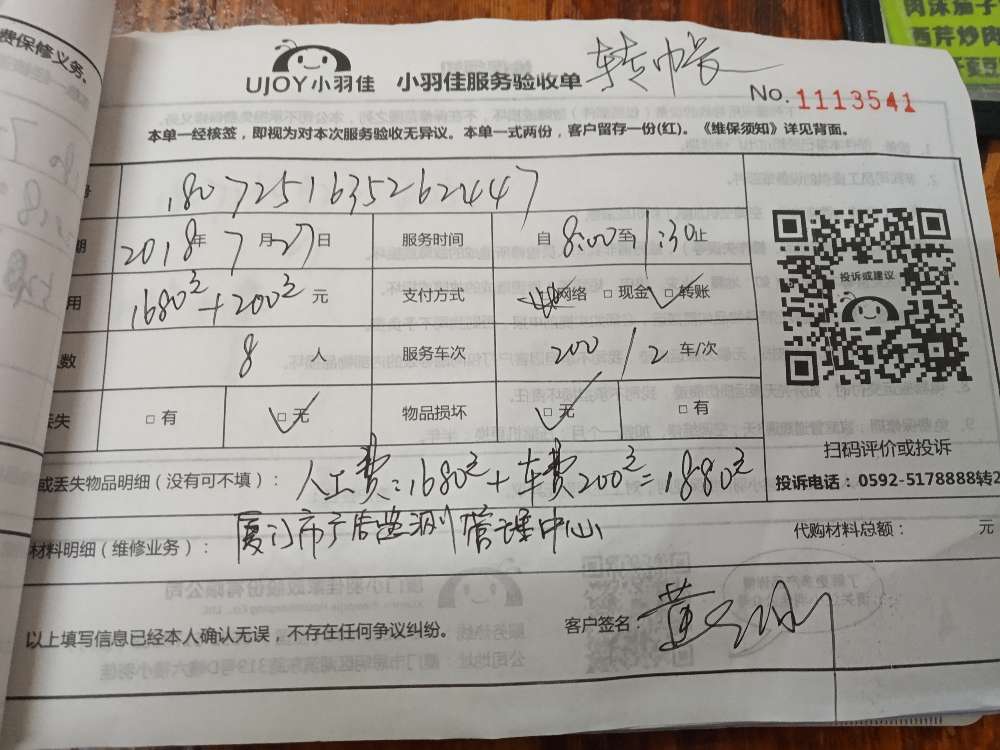 费保修义务、
肉沫茄子
西芹炒肉
UJOY小羽佳 小羽佳服务验收单 转帐
No. 1113541
本单一经核签，即视为对本次服务验收无异议。本单一式两份，客户留存一份(红)。《维保须知》详见背面。
号 1807251635262447
期 2018年7月27日 服务时间 自8:00至1:30止
用 1680元+200元 元 支付方式 网络 □ 现金 □ 转账
数 8 人 服务车次 200/2 车/次
丢失 □ 有 □ 无 物品损坏 □ 无 □ 有
投诉或建议
扫码评价或投诉
投诉电话：0592-5178888转2
或丢失物品明细（没有可不填）：人工费:1680元+车费200元=1880元
材料明细（维修业务）：厦门市 监测管理中心 代购材料总额： 元
以上填写信息已经本人确认无误，不存在任何争议纠纷。 客户签名：黄